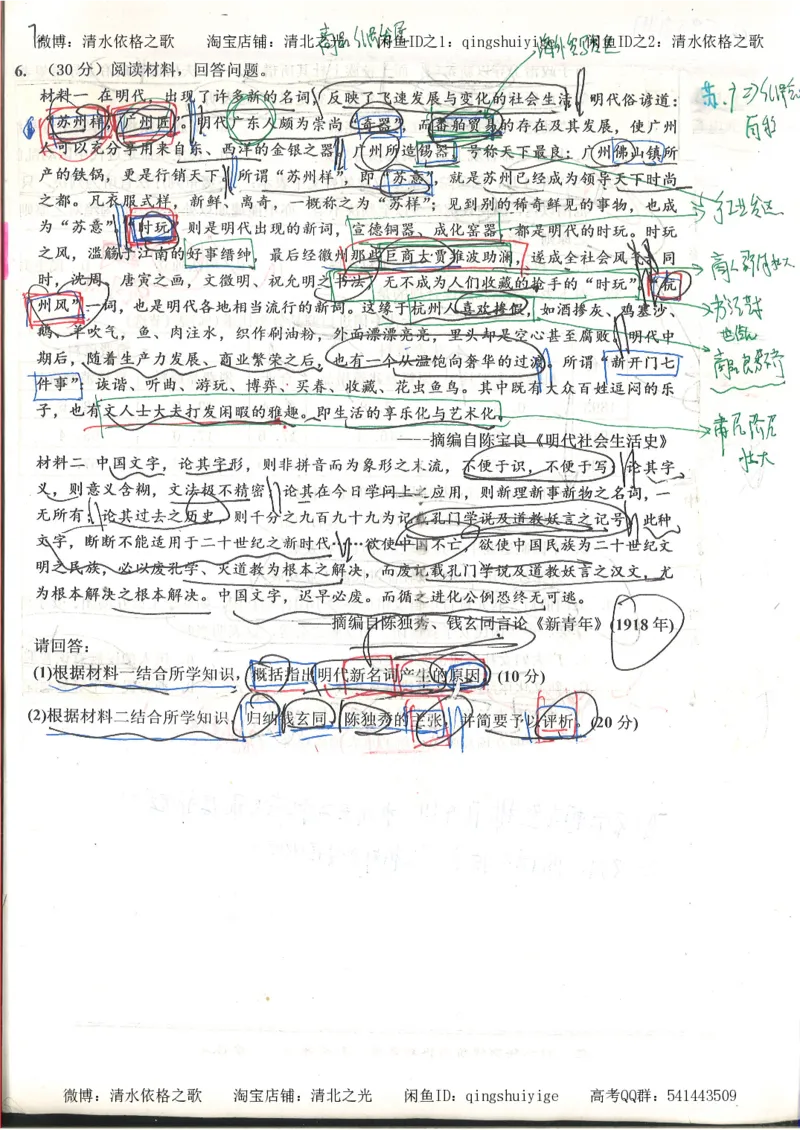 微博：清水依格之歌 淘宝店铺：清北之光 闲鱼ID之1：qingshuiyige 闲鱼ID之2：清水依格之歌
6. （30 分）阅读材料，回答问题。
材料一 在明代，出现了许多新的名词，反映了飞速发展与变化的社会生活。明代俗谚道：
“苏州样，广州匠”。明代广东人颇为崇尚“奇器”，而番舶贸易的存在及其发展，使广州
人可以充分享用来自东、西洋的金银之器。广州所造锡器，号称天下最良；广州佛山镇所
产的铁锅，更是行销天下。所谓“苏州样”，即“苏意”，就是苏州已经成为领导天下时尚
之都。凡衣服式样，新鲜、离奇，一概称之为“苏样”；见到别的稀奇鲜见的事物，也成
为“苏意”。“时玩”则是明代出现的新词，宣德铜器、成化窑器，都是明代的时玩。时玩
之风，滥觞于江南的好事缙绅，最后经徽州那些巨商大贾推波助澜，遂成全社会风气。同
时，沈周、唐寅之画，文徵明、祝允明之书法，无不成为人们收藏的抢手的“时玩”。“杭
州风”一词，也是明代各地相当流行的新词。这缘于杭州人喜欢搀假，如酒掺灰、鸡塞沙、
鹅、羊吹气，鱼、肉注水，织作刷油粉，外面漂漂亮亮，里头却是空心甚至腐败。明代中
期后，随着生产力发展、商业繁荣之后，也有一个从温饱向奢华的过渡。所谓“新开门七
件事”：诙谐、听曲、游玩、博弈、买春、收藏、花虫鱼鸟。其中既有大众百姓逗闷的乐
子，也有文人士大夫打发闲暇的雅趣。即生活的享乐化与艺术化。
——摘编自陈宝良《明代社会生活史》
材料二 中国文字，论其字形，则非拼音而为象形之末流，不便于识，不便于写；论其字
义，则意义含糊，文法极不精密；论其在今日学问上之应用，则新理新事新物之名词，一
无所有；论其过去之历史，则千分之九百九十九为记载孔门学说及道教妖言之记号。此种
文字，断断不能适用于二十世纪之新时代……欲使中国不亡，欲使中国民族为二十世纪文
明之民族，必以废孔学、灭道教为根本之解决，而废记载孔门学说及道教妖言之汉文，尤
为根本解决之根本解决。中国文字，迟早必废。而循之进化公例恐终无可逃。
——摘编自陈独秀、钱玄同言论《新青年》(1918 年)
请回答：
(1)根据材料一结合所学知识，概括指出明代新名词产生的原因。(10 分)
(2)根据材料二结合所学知识，归纳钱玄同、陈独秀的主张，并简要予以评析。(20 分)
微博：清水依格之歌 淘宝店铺：清北之光 闲鱼ID：qingshuiyige 高考QQ群：541443509